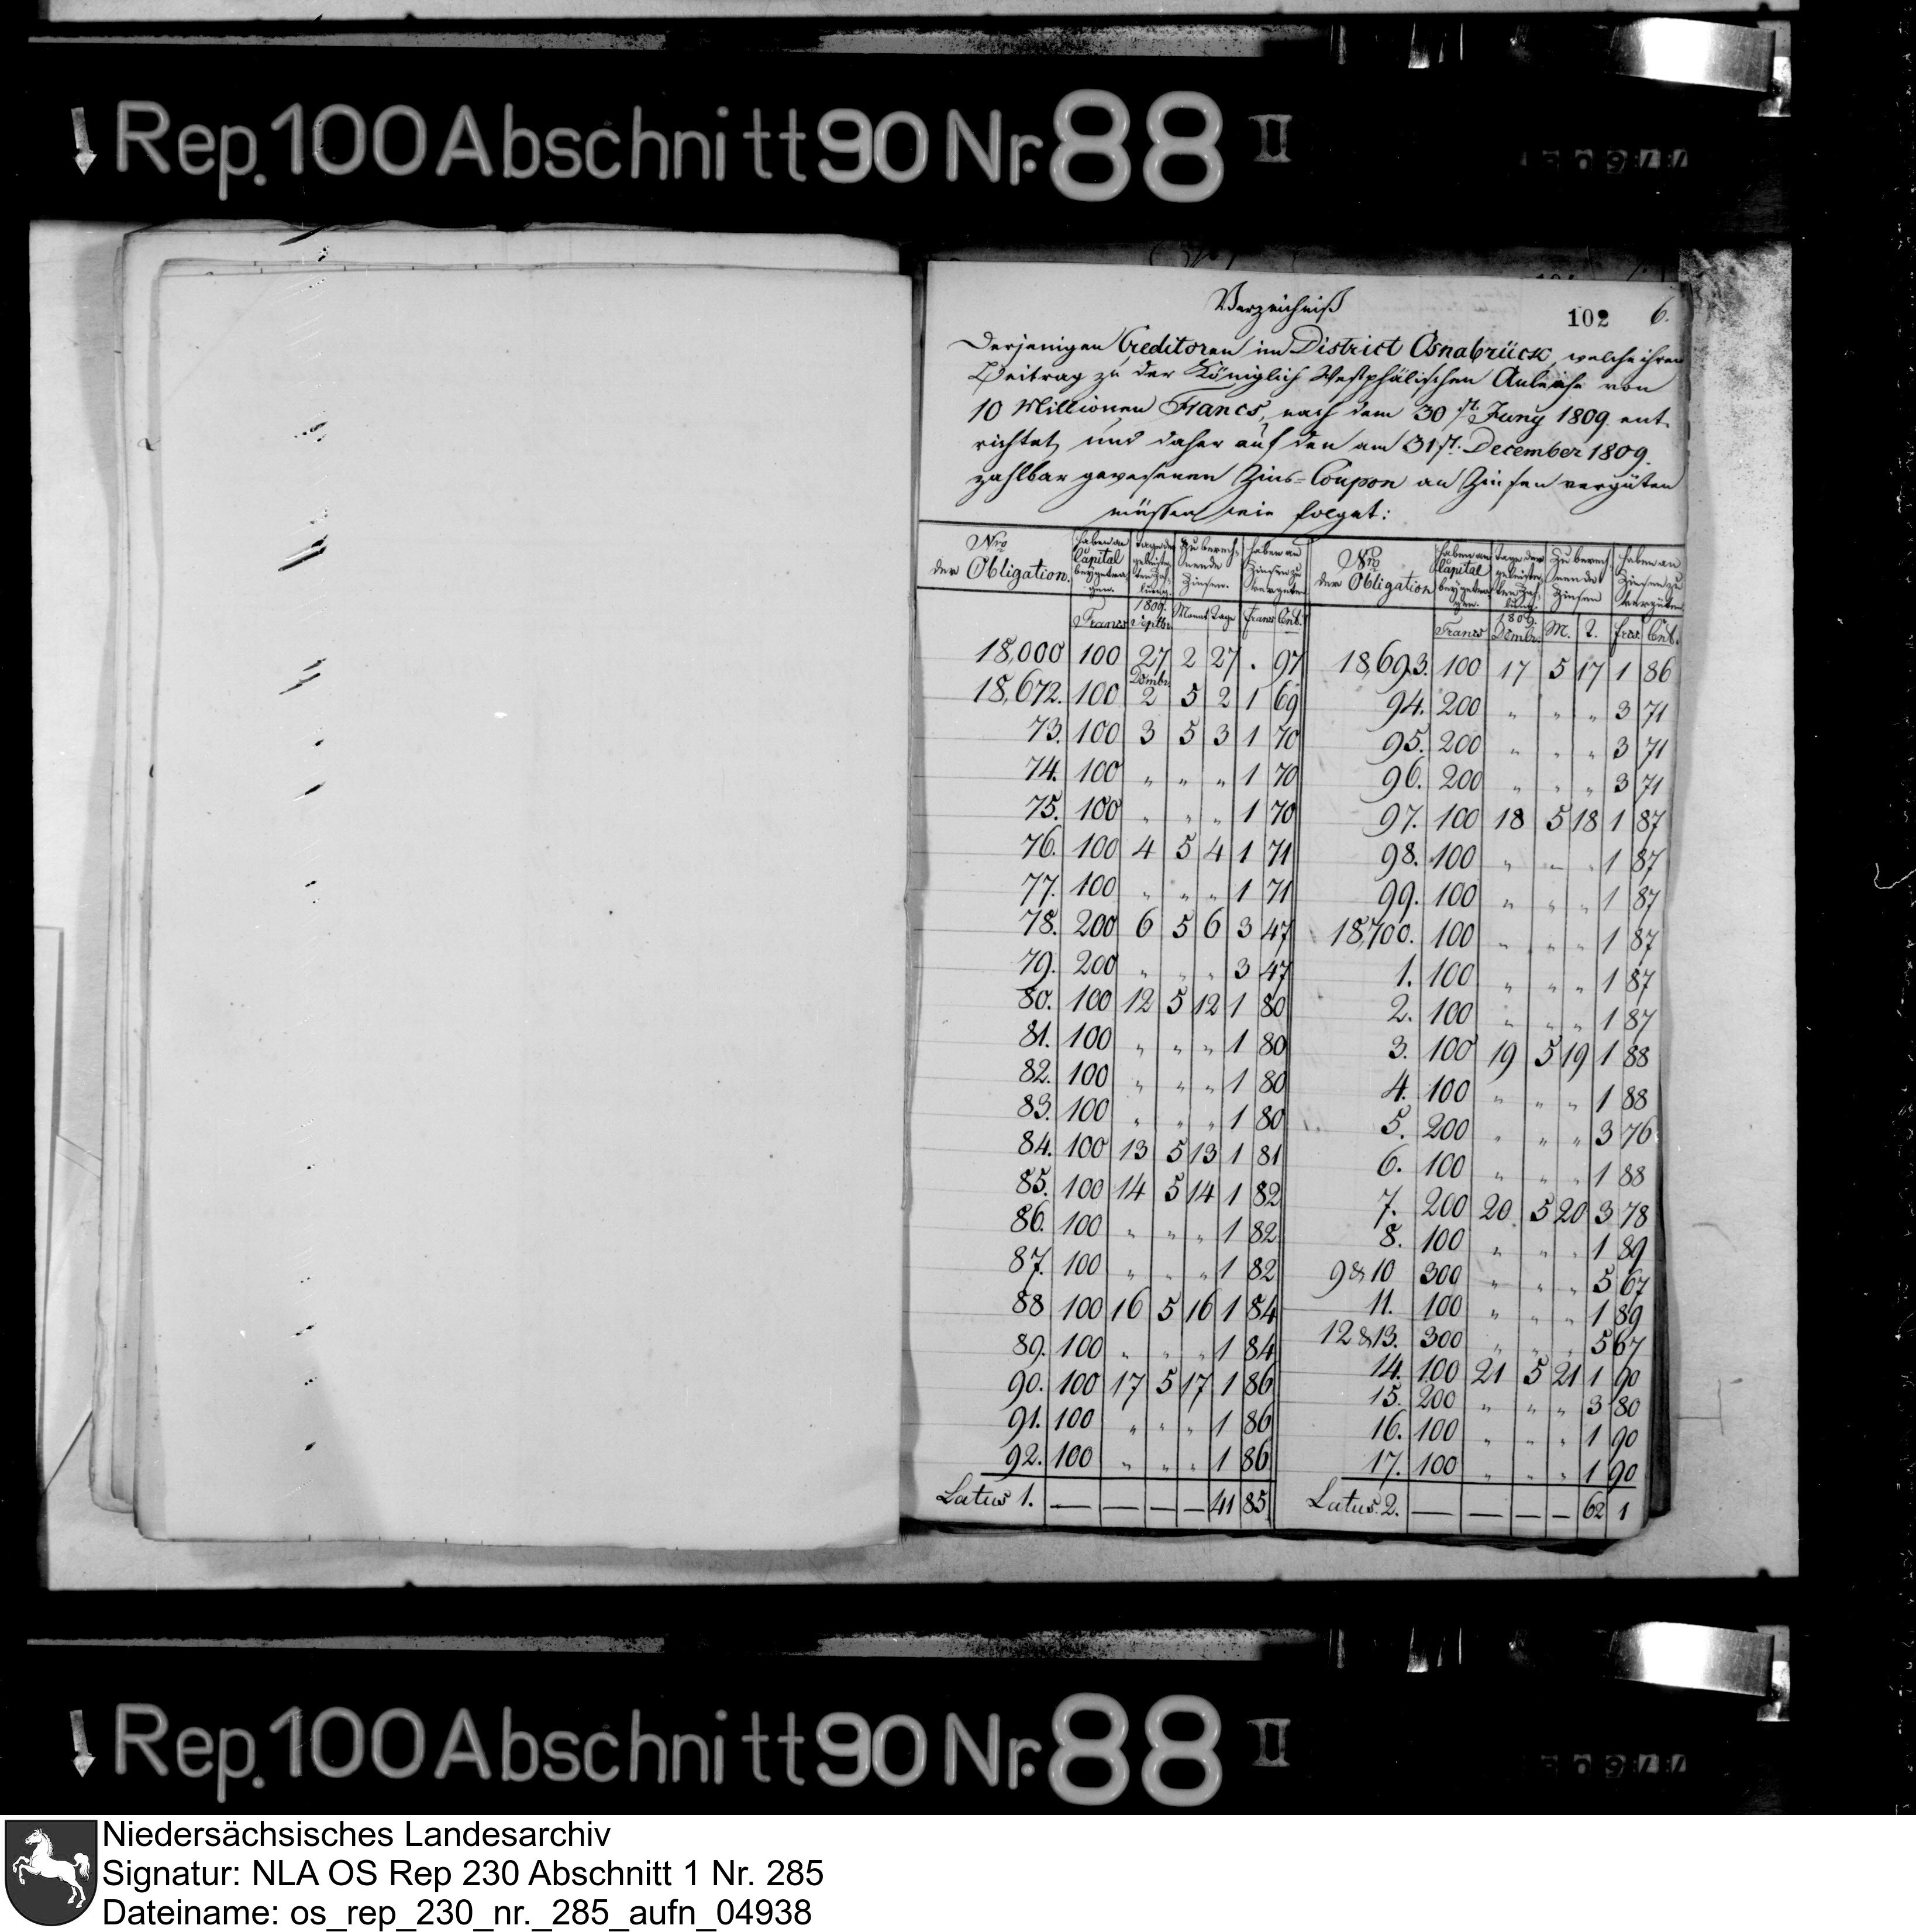 Rep. 100 Abschnitt 90 Nr. 88 II
102 6.
Verzeichniß
Derjenigen Creditoren im District Osnabrück, welche ihren
Beitrag zu der Königlich Westphälischen Anleihe von
10 Millionen Francs, nach dem 30st. Juny 1809. ent
richtet, und daher auf den am 31st. December 1809.
zahlbar gewesenen Zins-Coupon an Zinsen vergüten
müssen wie folget:
Nro der Obligation. haben an Capital beygetragen. Tage der geleisteten Zahlung. Zu berechnende Zinsen. haben an Zinsen zu vergüten Nro der Obligation haben an Capital beygetragen. Tage der geleisteten Zahlung. Zu berechnende Zinsen haben an Zinsen zu vergüten
Francs 1809. Septbr. Monat Tage Francs Cent. Francs 1809. Dcmbr. M. T. Frcs. Cent.
18,000 100 27 2 27 . 97 18,693. 100 17 5 17 1 86
Dcmbr.
18,672. 100 2 5 2 1 69 94. 200 " " " 3 71
73. 100 3 5 3 1 70 95. 200 " " " 3 71
74. 100 " " " 1 70 96. 200 " " " 3 71
75. 100 " " " 1 70 97. 100 18 5 18 1 87
76. 100 4 5 4 1 71 98. 100 " " " 1 87
77. 100 " " " 1 71 99. 100 " " " 1 87
78. 200 6 5 6 3 47 18,700. 100 " " " 1 87
79. 200 " " " 3 47 1. 100 " " " 1 87
80. 100 12 5 12 1 80 2. 100 " " " 1 87
81. 100 " " " 1 80 3. 100 19 5 19 1 88
82. 100 " " " 1 80 4. 100 " " " 1 88
83. 100 " " " 1 80 5. 200 " " " 3 76
84. 100 13 5 13 1 81 6. 100 " " " 1 88
85. 100 14 5 14 1 82 7. 200 20 5 20 3 78
86. 100 " " " 1 82 8. 100 " " " 1 89
87. 100 " " " 1 82 9 & 10 300 " " " 5 67
88 100 16 5 16 1 84 11. 100 " " " 1 89
89. 100 " " " 1 84 12 & 13. 300 " " " 5 67
90. 100 17 5 17 1 86 14. 100 21 5 21 1 90
91. 100 " " " 1 86 15. 200 " " " 3 80
92. 100 " " " 1 86 16. 100 " " " 1 90
17. 100 " " " 1 90
Latus 1. — — — — 41 85 Latus. 2. — — — — 62 1
Rep. 100 Abschnitt 90 Nr. 88 II
Niedersächsisches Landesarchiv
Signatur: NLA OS Rep 230 Abschnitt 1 Nr. 285
Dateiname: os_rep_230_nr._285_aufn_04938